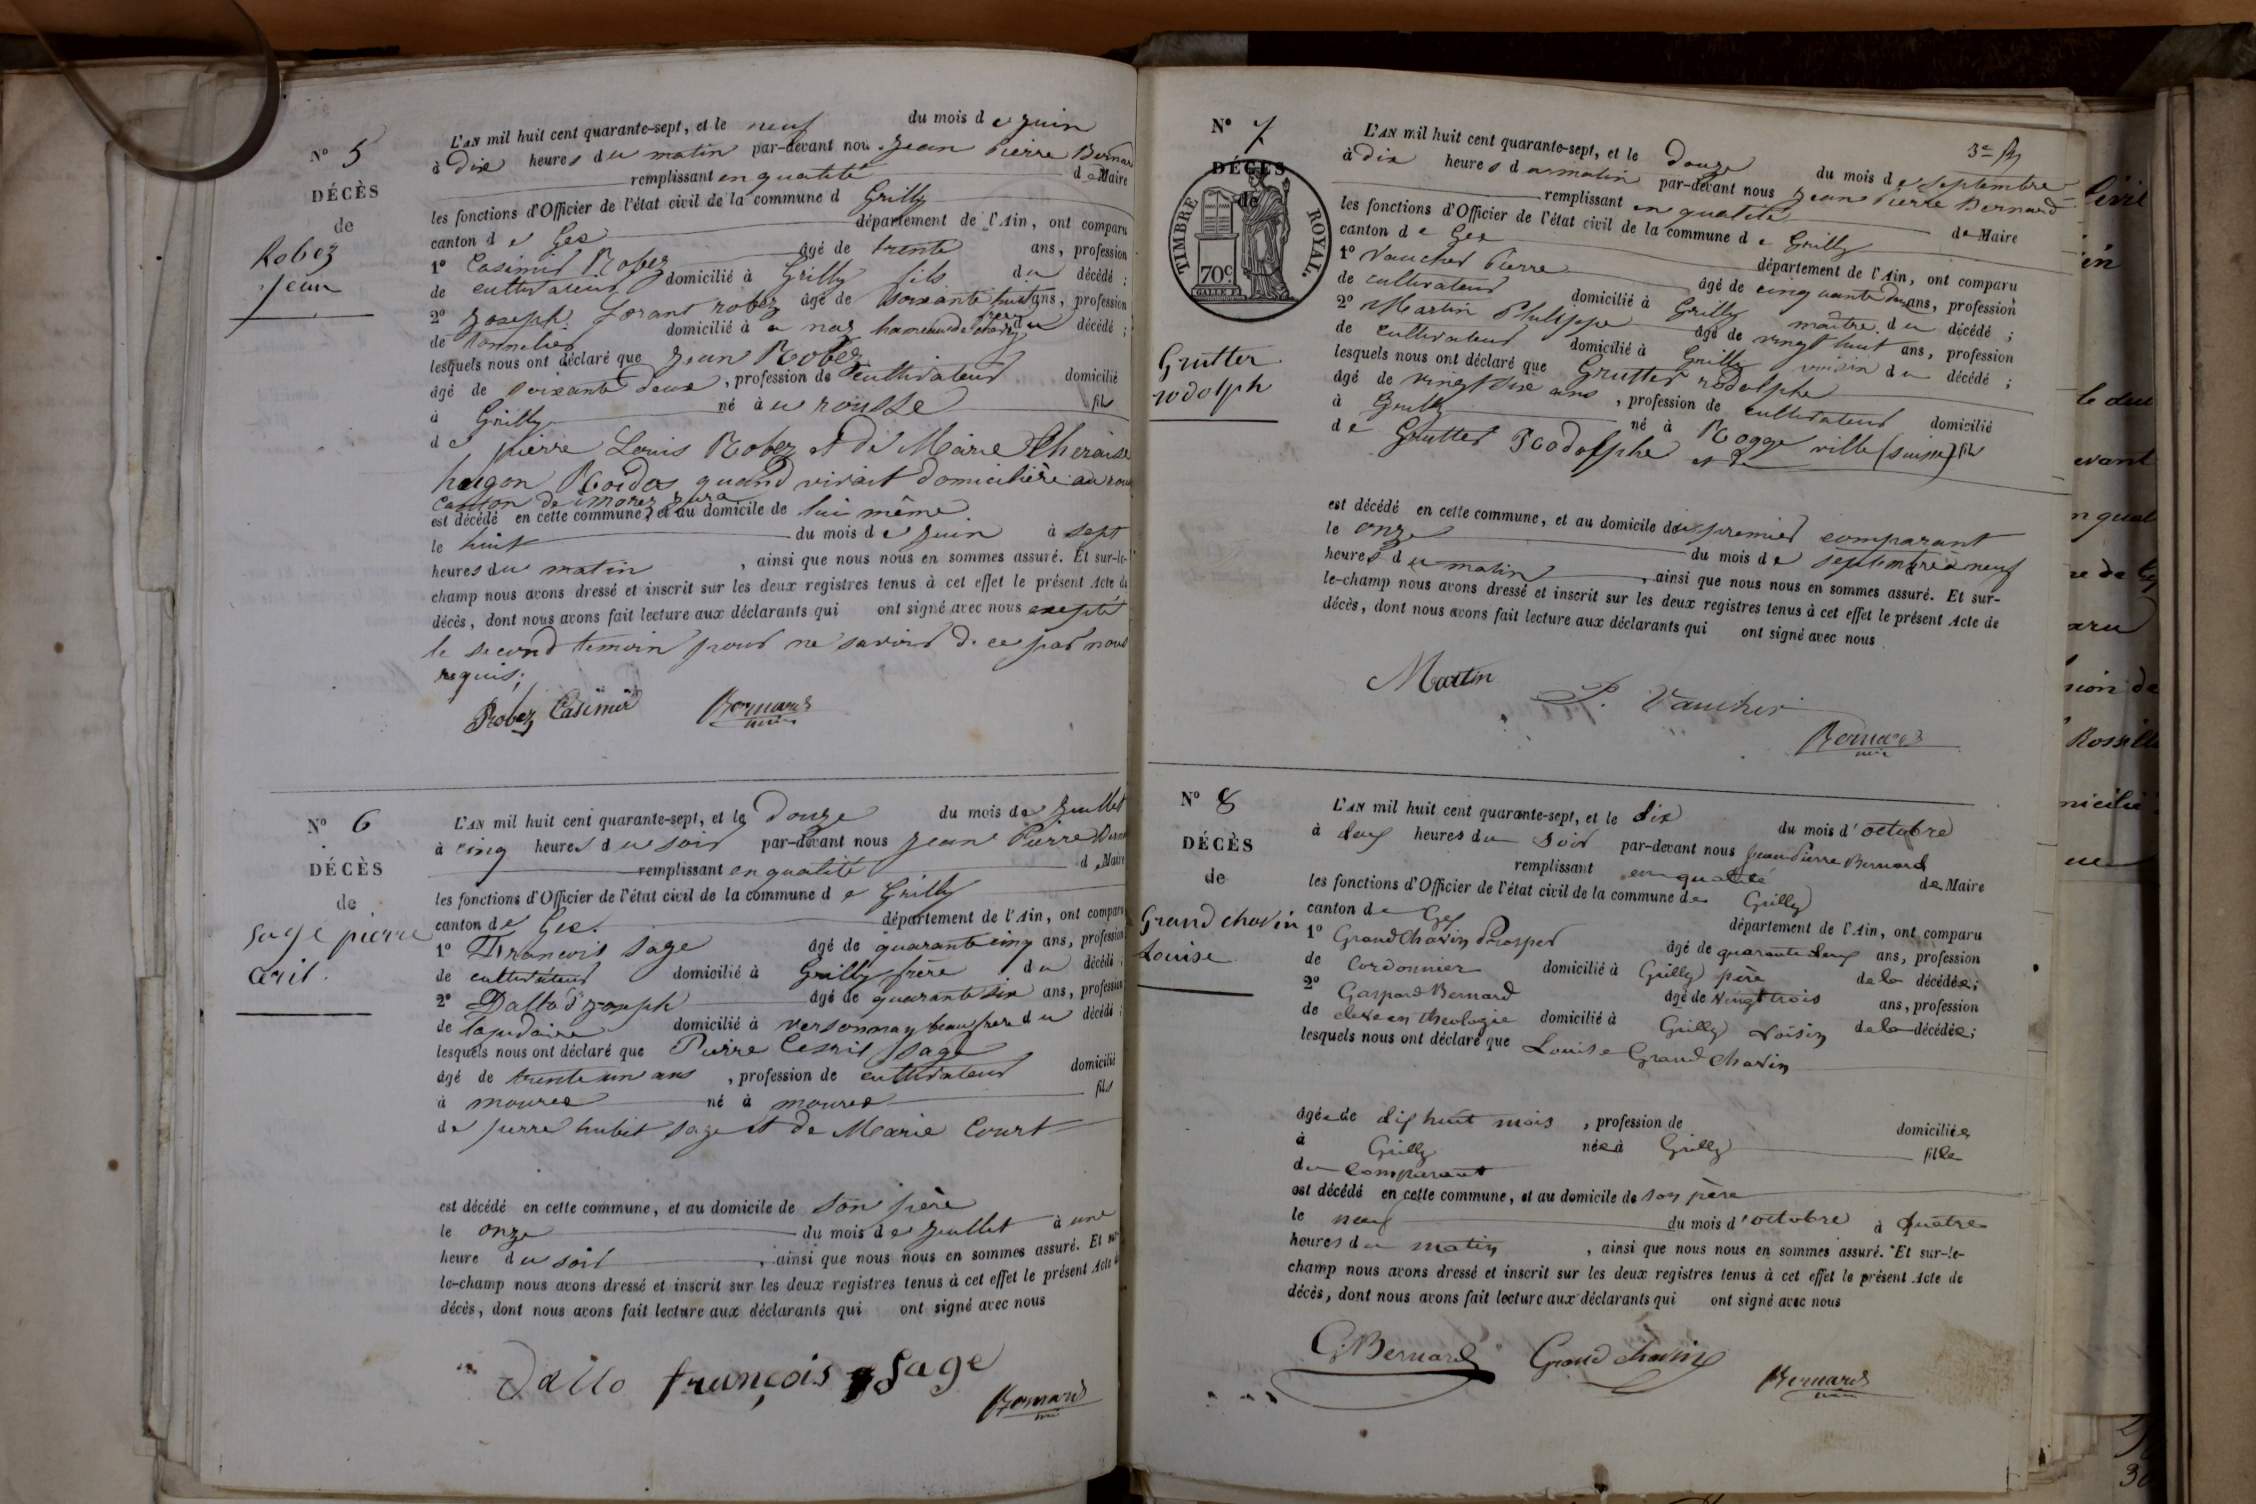 N° 5
DÉCÈS
de
Robez
Jean
L'AN mil huit cent quarante-sept, et le neuf du mois de juin
à dix heures du matin par-devant nou Jean Pierre Bernar
remplissant en qualité de Maire
les fonctions d'Officier de l'état civil de la commune d Grilly
canton de Gex département de l'Ain, ont comparu
1° Casimir Robez âgé de trente ans, profession
de cultivateur domicilié à Grilly fils du décédé ;
2° Joseph robez âgé de soixante huit ans, profession
de tonnelier domicilié à hameau de du décédé ;
lesquels nous ont déclaré que Jean Robez
âgé de soixante deux , profession de cultivateur domicilié
à Grilly né à fils
de pierre Louis Robez et de Marie
quand vivait domiciliée
canton de morez jura
est décédé en cette commune, et au domicile de lui même
le huit du mois de juin à sept
heures du matin , ainsi que nous nous en sommes assuré. Et sur-le-
champ nous avons dressé et inscrit sur les deux registres tenus à cet effet le présent Acte de
décès, dont nous avons fait lecture aux déclarants qui ont signé avec nous excepté
le second temoin pour ne savoir de ce par nous
requis;
Robez Casimir Bernard
N° 6
DÉCÈS
de
Sage pierre
L'AN mil huit cent quarante-sept, et le Douze du mois de Juillet
à cinq heures du soir par-devant nous Jean Pierre
remplissant en qualité d Maire
les fonctions d'Officier de l'état civil de la commune de Grilly
canton de Gex. département de l'Ain, ont comparu
1° François Sage âgé de quarante cinq ans, profession
de cultivateur domicilié à Grilly frère du décédé ;
2° Dallo Joseph âgé de quarante six ans, profession
de lapidaire domicilié à versonnay beau frere du décédé ;
lesquels nous ont déclaré que Pierre Sage
âgé de trente un ans , profession de cultivateur domicilié
à mourex né à mourex fils
de Sage et de Marie Court
est décédé en cette commune, et au domicile de son frère
le onze du mois de Juillet à une
heure du soir , ainsi que nous nous en sommes assuré. Et sur-
le-champ nous avons dressé et inscrit sur les deux registres tenus à cet effet le présent Acte de
décès, dont nous avons fait lecture aux déclarants qui ont signé avec nous
Dallo françois Sage
Bernard
N° 7
DÉCÈS
de
TIMBRE ROYAL.
70c
Grutter
rodolph
L'AN mil huit cent quarante-sept, et le douze du mois de septembre
à dix heures du matin par-devant nous Jean Pierre Bernard
remplissant en qualité de Maire
les fonctions d'Officier de l'état civil de la commune de Grilly
canton de Gex département de l'Ain, ont comparu
1° Vaucher Pierre âgé de cinquante deux ans, profession
de cultivateur domicilié à Grilly maître du décédé ;
2° Martin Philippe âgé de vingt huit ans, profession
de cultivateur domicilié à Grilly voisin du décédé ;
lesquels nous ont déclaré que Grutter rodolphe
âgé de vingt six ans , profession de cultivateur domicilié
à Grilly né à Rogge ville (suisse) fils
de Grutter Rodolphe et de
est décédé en cette commune, et au domicile du premier comparant
le onze du mois de septembre à neuf
heures du matin , ainsi que nous nous en sommes assuré. Et sur-
le-champ nous avons dressé et inscrit sur les deux registres tenus à cet effet le présent Acte de
décès, dont nous avons fait lecture aux déclarants qui ont signé avec nous
Martin P. Vaucher
Bernard
N° 8
DÉCÈS
de
Grand chavin
Louise
L'AN mil huit cent quarante-sept, et le dix du mois d'octobre
à deux heures du soir par-devant nous Jean Pierre Bernard
remplissant en qualité de Maire
les fonctions d'Officier de l'état civil de la commune de Grilly
canton de Gex département de l'Ain, ont comparu
1° Grand Chavin Prosper âgé de quarante deux ans, profession
de Cordonnier domicilié à Grilly père de la décédée ;
2° Gaspard Bernard âgé de vingt trois ans, profession
de clerc en theologie domicilié à Grilly voisin de la décédée ;
lesquels nous ont déclaré que Louise Grand Chavin
âgée de dix huit mois , profession de domiciliée
à Grilly née à Grilly fille
du comparant
est décédé en cette commune, et au domicile de son père
le neuf du mois d'octobre à quatre
heures du matin , ainsi que nous nous en sommes assuré. Et sur-le-
champ nous avons dressé et inscrit sur les deux registres tenus à cet effet le présent Acte de
décès, dont nous avons fait lecture aux déclarants qui ont signé avec nous
G. Bernard Grand chavin Bernard